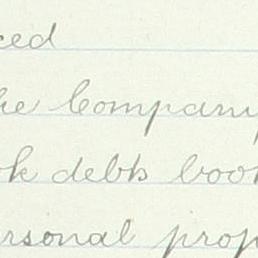 ced
he Company
ok debts book
rsonal prop